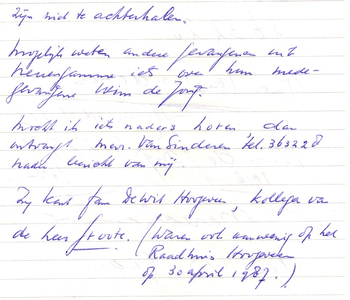 zijn niet te achterhalen.
Mogelijk weten andere gevangenen uit
Neuengamme iets over hun mede-
gevangene Wim de Jong.
Mocht ik iets naders horen dan
ontvangt mevr. Van Sinderen, tel. 363228
nader bericht van mij.
Zij kent fam De Wit Hoogeveen, kollega va
de heer Stoote. (Waren ook aanwezig op het
Raadhuis Hoogeveen
op 30 april 1987.)